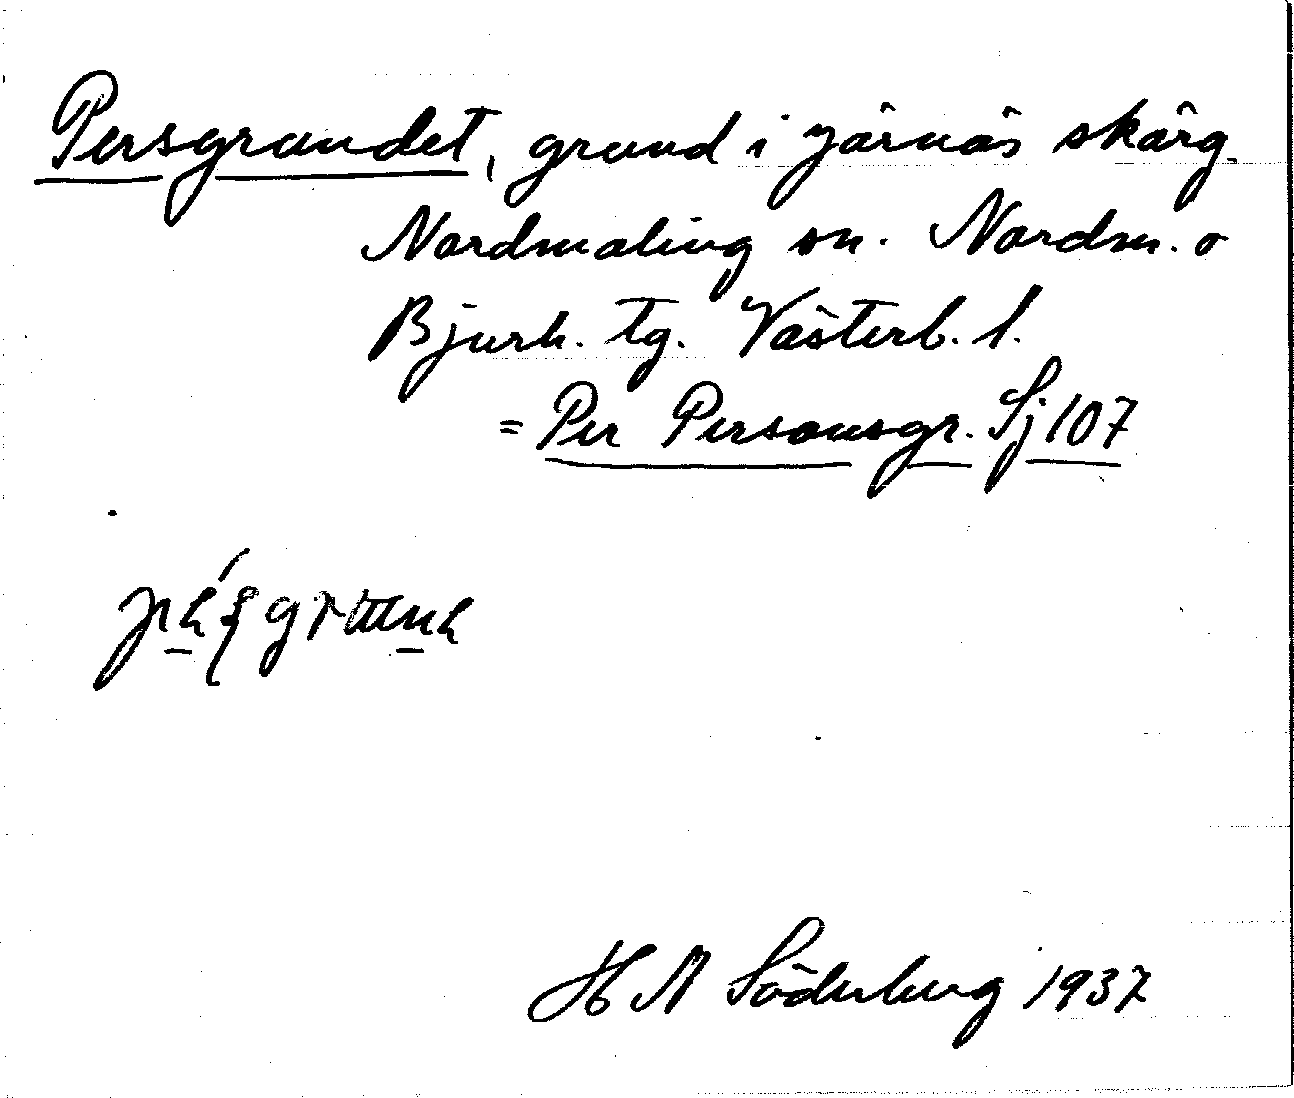 Persgrundet, grund i Järnäs skärg.
Nordmaling sn. Nordm. o
Bjurh. tg. Västerb. l.
= Per Personsgr. Sj 107
H N Söderberg 1937